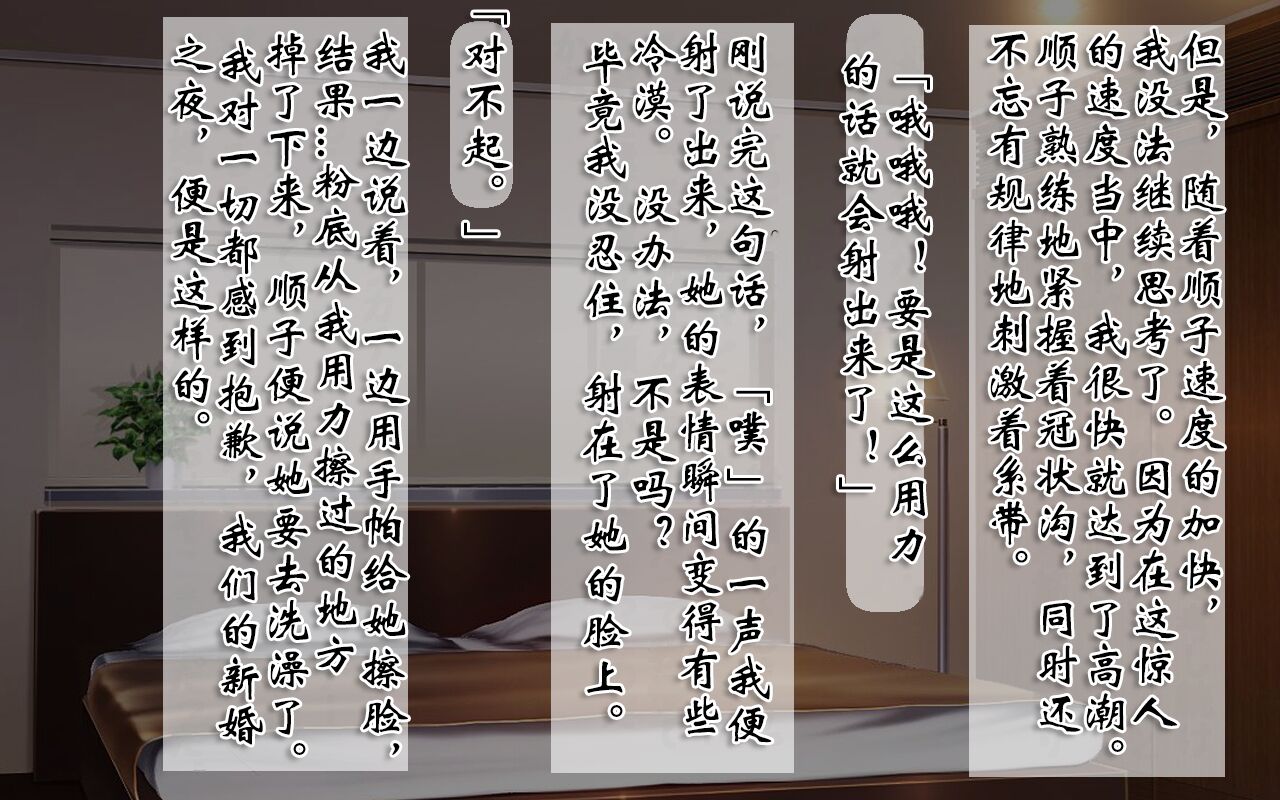 但是，随着顺子速度的加快，
我没法继续思考了。因为在这惊人
的速度当中，我很快就达到了高潮。
顺子熟练地紧握着冠状沟，同时还
不忘有规律地刺激着系带。
「哦哦哦！要是这么用力
的话就会射出来了！」
刚说完这句话，「噗」的一声我便
射了出来，她的表情瞬间变得有些
冷漠。没办法，不是吗？
毕竟我没忍住，射在了她的脸上。
「对不起。」
我一边说着，一边用手帕给她擦脸，
结果…粉底从我用力擦过的地方
掉了下来，顺子便说她要去洗澡了。
我对一切都感到抱歉，我们的新婚
之夜，便是这样的。